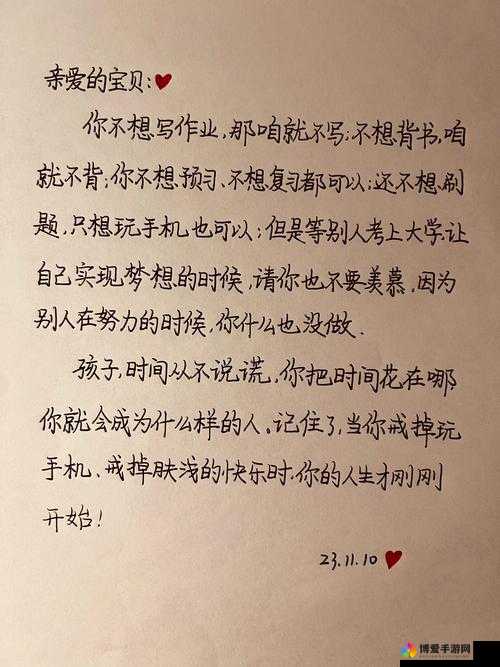 亲爱的宝贝:
你不想写作业,那咱就不写;不想背书,咱
就不背;你不想预习、不想复习都可以;还不想刷
题,只想玩手机也可以;但是等别人考上大学.让
自己实现梦想的时候,请你也不要羡慕,因为
别人在努力的时候,你什么也没做.
孩子,时间从不说谎,你把时间花在哪
你就会成为什么样的人。记住了,当你戒掉玩
手机、戒掉肤浅的快乐时.你的人生才刚刚
开始!
23.11.10
博爱手游网